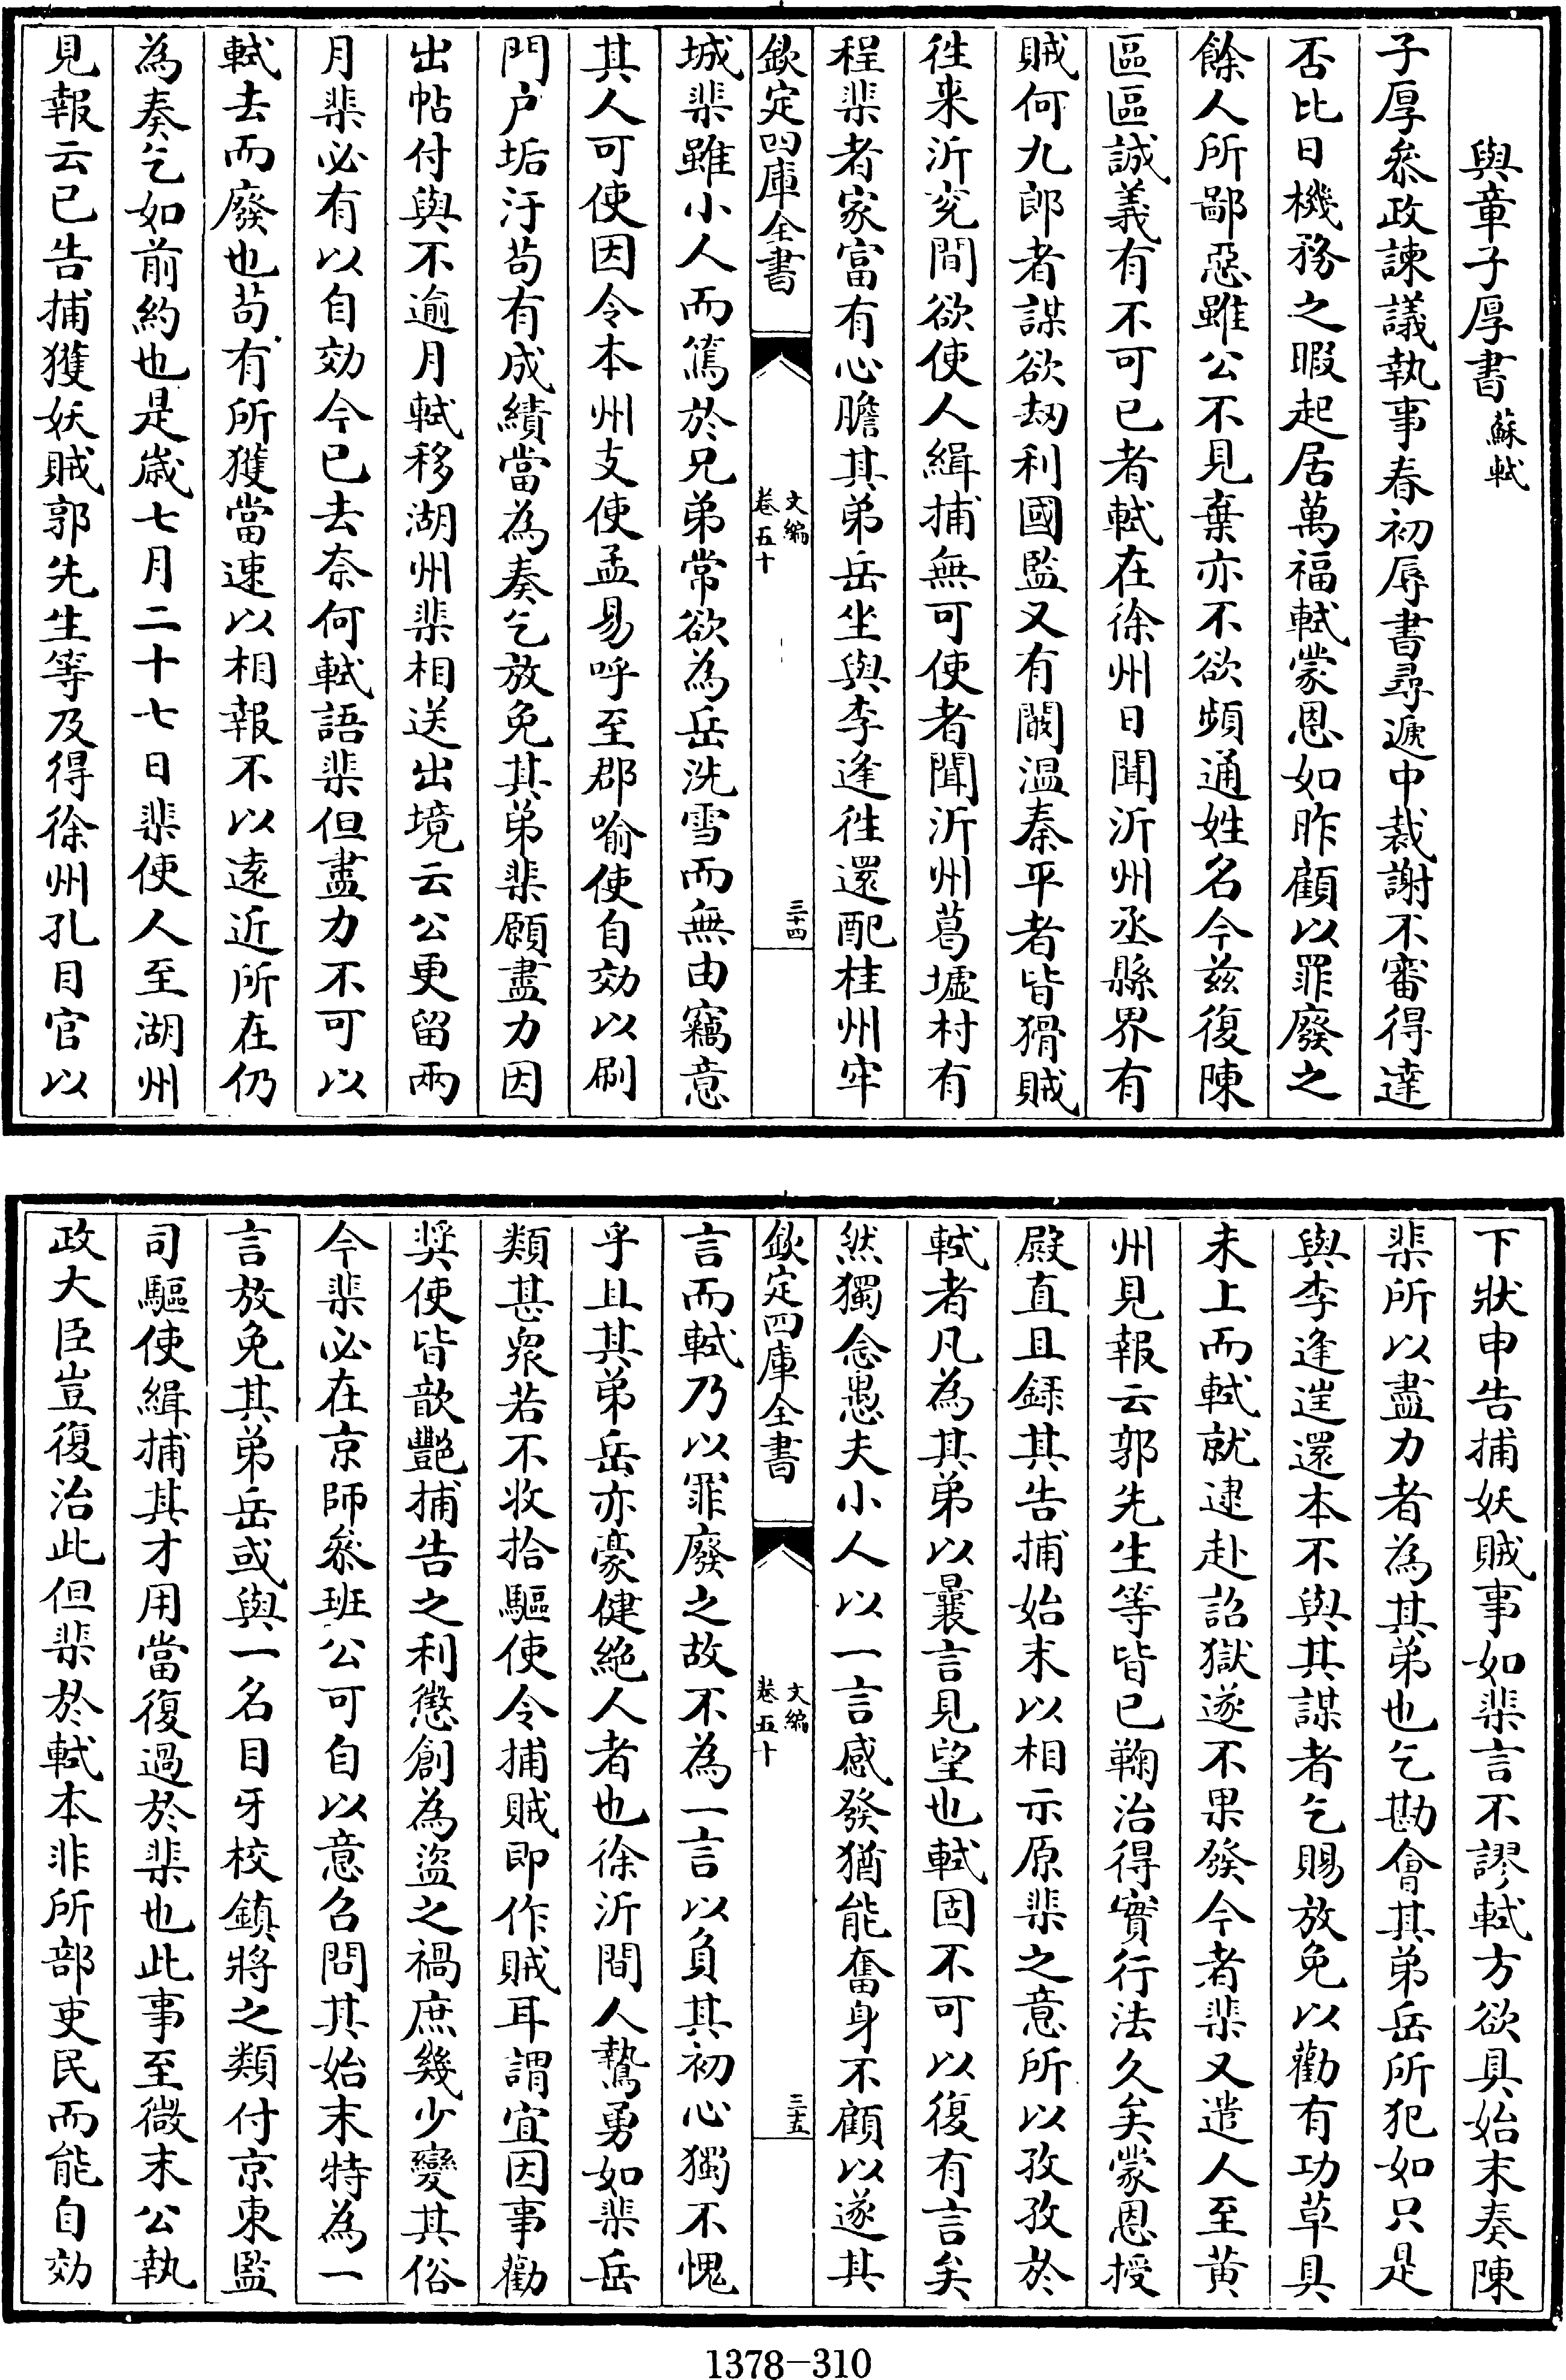 與章子厚書蘇軾
子厚叅政諫議執事春初辱書尋遞中裁謝不審得達
否比日機務之暇起居萬福軾蒙恩如昨顧以罪廢之
餘人所鄙惡雖公不見棄亦不欲頻通姓名今兹復陳
區區誠義有不可已者軾在徐州日聞沂州丞縣界有
賊何九郎者謀欲刼利國監又有闞温秦平者皆猾賊
徃来沂兖間欲使人緝捕無可使者聞沂州葛墟村有
程棐者家富有心膽其弟岳坐與李逢徃還配桂州牢
欽定四庫全書
文編
卷五十
三十四
城棐雖小人而篤於兄弟常欲為岳洗雪而無由竊意
其人可使因令本州支使孟易呼至郡喻使自効以刷
門户垢汙苟有成績當為奏乞放免其弟棐願盡力因
出帖付與不逾月軾移湖州棐相送出境云公更留兩
月棐必有以自効今已去奈何軾語棐但盡力不可以
軾去而廢也苟有所獲當速以相報不以遠近所在仍
為奏乞如前約也是歲七月二十七日棐使人至湖州
見報云已告捕獲妖賊郭先生等及得徐州孔目官以
下狀申告捕妖賊事如棐言不謬軾方欲具始末奏陳
棐所以盡力者為其弟也乞勘會其弟岳所犯如只是
與李逢徃還本不與其謀者乞賜放免以勸有功草具
未上而軾就逮赴詔獄遂不果發今者棐又遣人至黄
州見報云郭先生等皆已鞠治得實行法久矣蒙恩授
殿直且録其告捕始末以相示原棐之意所以孜孜於
軾者凡為其弟以曩言見望也軾固不可以復有言矣
然獨念愚夫小人以一言感發猶能奮身不顧以遂其
欽定四庫全書
文編
卷五十
三十五
言而軾乃以罪廢之故不為一言以負其初心獨不愧
乎且其弟岳亦豪健絶人者也徐沂間人鷙勇如棐岳
類甚衆若不收拾驅使令捕賊即作賊耳謂宜因事勸
奬使皆歆艷捕告之利懲創為盗之禍庶幾少變其俗
今棐必在京師叅班公可自以意召問其始末特為一
言放免其弟岳或與一名目牙校鎮將之類付京東監
司驅使緝捕其才用當復過於棐也此事至微末公執
政大臣豈復治此但棐於軾本非所部吏民而能自効
1378—310